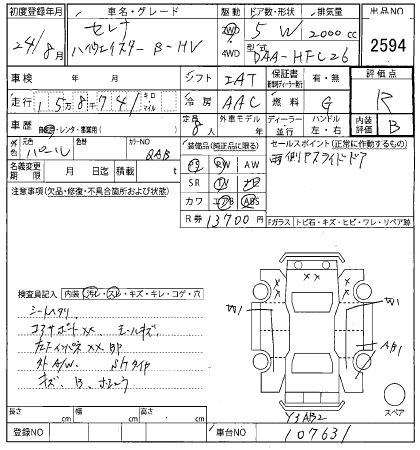 初度登録年月 車名・グレード 駆動 ドア数・形状 排気量 出品NO
24/8月 セレナ 2WD 4WD 5 W 2000cc 2594
ハイウェイスター B-HV 型式 DAA-HFC26
車検 年 月 シフト IAT 保証書 有・無 評価点
走行 15万8千741 キロ マイル 冷房 AAC 燃料 G R
車歴 自家・レンタ・事業用( ) 定員 8人 外車モデル 年 ディーラー 並行 ハンドル 左・右 内装評価 B
外色 元色 パール 色替 カラーNO QAB 装備品(純正品に限る) セールスポイント(正常に作動するもの)
名義変更期限 月 日迄 積載 t PS PW AW 両側Pスライドドア
注意事項(欠品・修復・不具合箇所および状態) SR TV ナビ
カワ エアB ABS
R券 13700円 Fガラス トビ石・キズ・ヒビ・ワレ・リペア跡
検査員記入 内装(汚レ・スレ・キズ・キレ・コゲ・穴)
シートヘタリ
コアサポートXX モールキズ
XX
外A/W
キズ、B、
W1 W1
AB1
スペア
長さ cm 幅 cm 高さ cm
登録NO 車台NO 107631